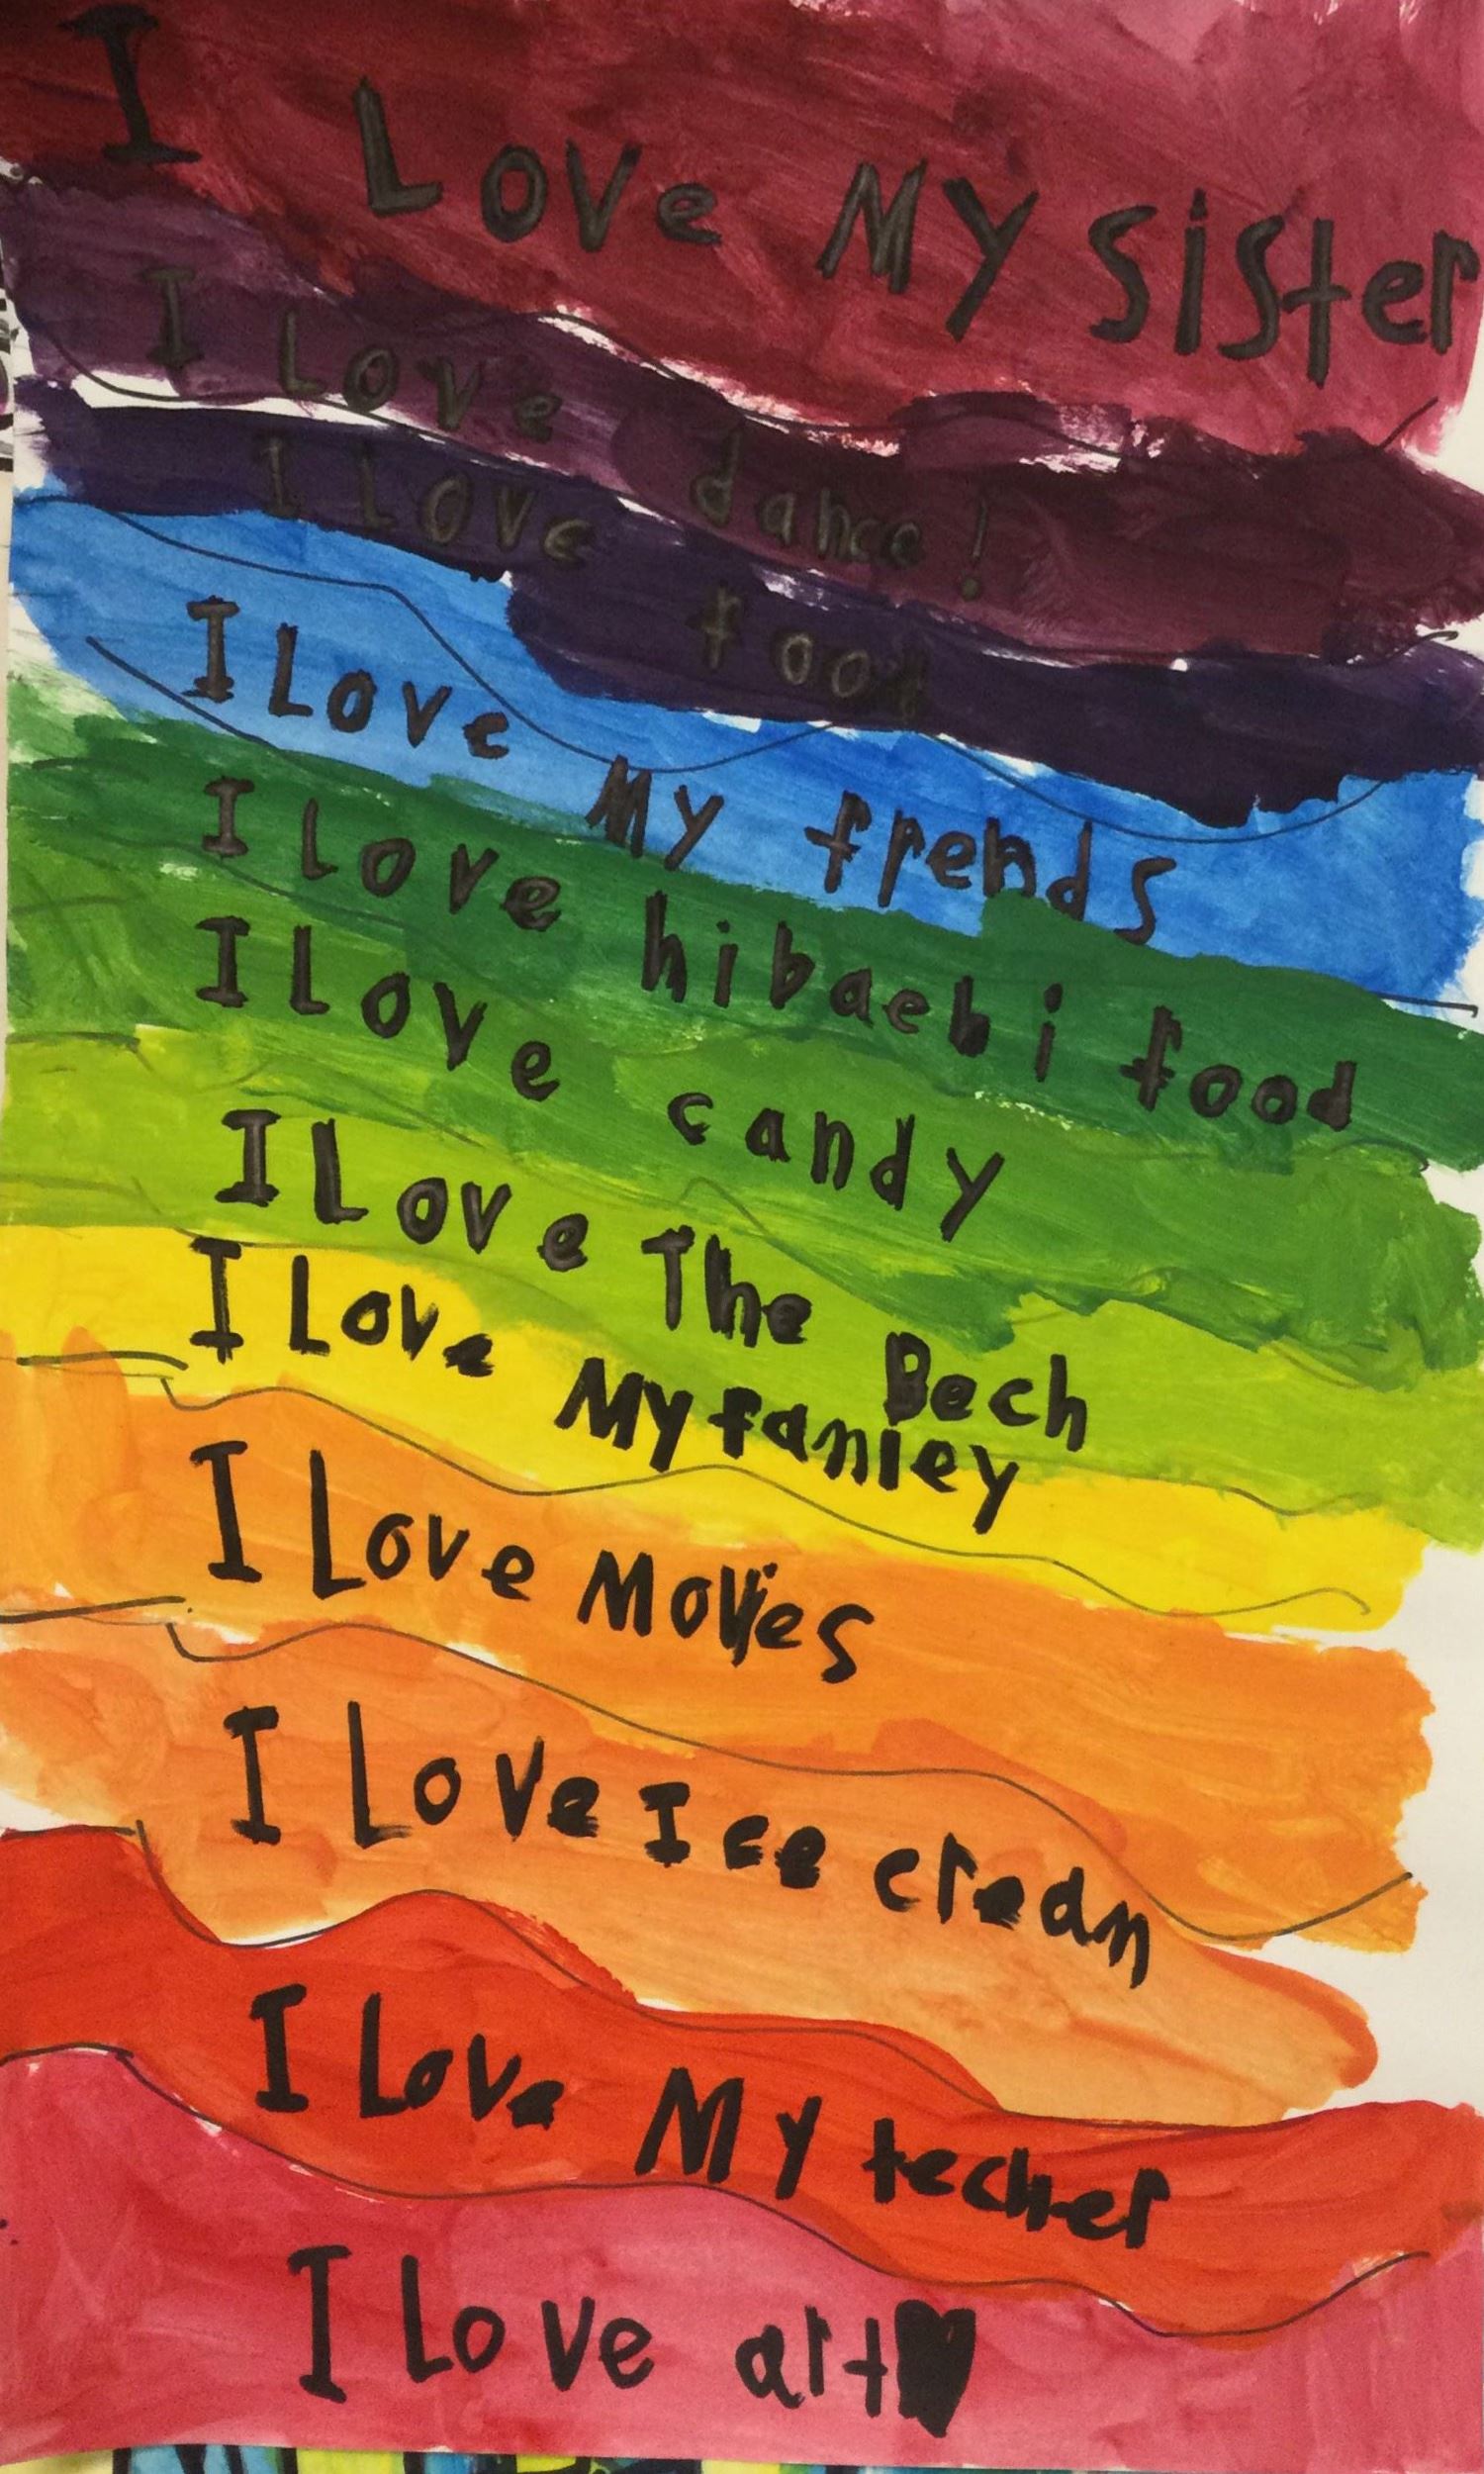 I Love My sister
I Love dance!
I Love food
I Love My frends
I Love hibaehi food
I Love candy
I Love The Bech
I Love My fanley
I Love Movies
I Love Ice cream
I Love My techer
I Love art